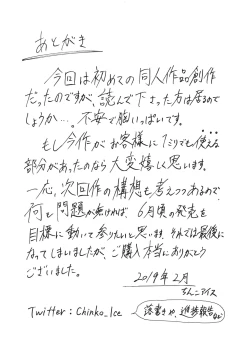 あとがき
今回は初めての同人作品創作
だったのですが、読んで下さった方は居るので
しょうか…。不安で胸いっぱいです。
もし今作がお客様に1ミリでも使える
部分があったのなら大変嬉しく思います。
一応、次回作の構想も考えつつあるので
何も問題が無ければ6月頃の発売を
目標に動いて参りたいと思います。それでは最後に
なってしまいましたが、ご購入本当にありがとう
ございました。
2019年2月
ちんこアイス
Twitter : Chinko_Ice
落書きや、進捗報告など